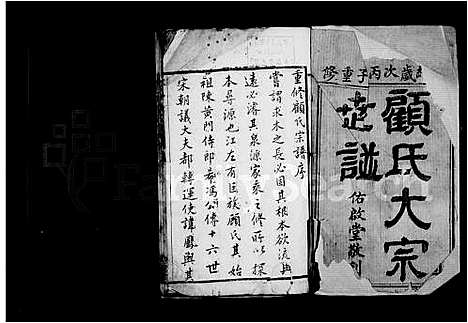 歲次丙子重修
顧氏大宗
世譜
佑啟堂敬刊
重修顧氏宗譜序
嘗謂求木之長必固其根本欲流與
遠必濬其泉源家乗之修所以探
本尋源也江左有巨族顧氏其始
祖陳黃門侍郎希馮公傳十六世
宋朝議大夫都轉運使諱鳳與其